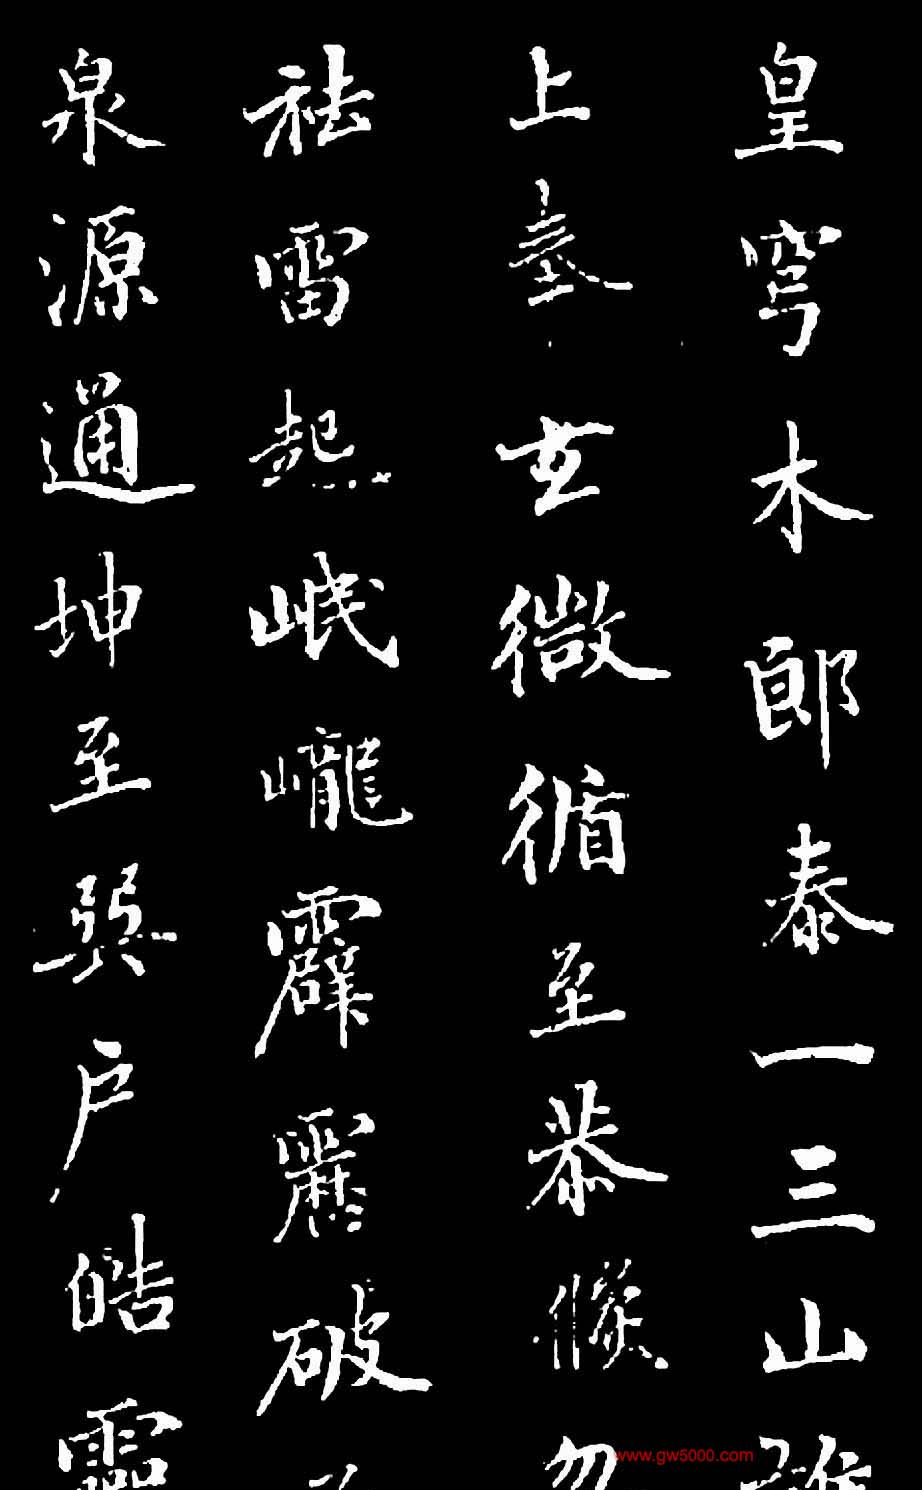 皇穹木郎泰一三山雄
上微循至恭候勿
祛雷起岷巃霹靂破
泉源通坤至巽户皓靈
www.gw5000.com